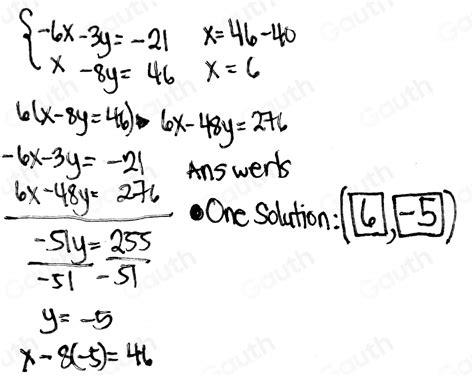 -6x-3y=-21
x -8y= 46
x=46-40
x=6
6(x-8y=46) ▸ 6x-48y=276
-6x-3y= -21
6x-48y= 276
-51y = 255
-51 -51
y= -5
x-8(-5)=46
Answers
•One Solution: (6, -5)